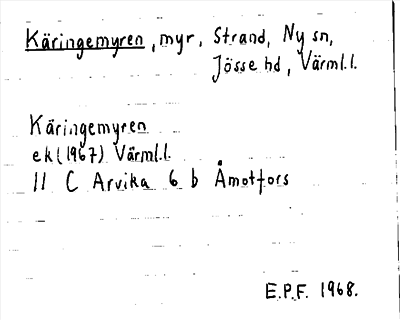 Käringemyren, myr, Strand, Ny sn,
Jösse hd, Värml.l.
Käringemyren
ek (1967) Värml.l.
11 C Arvika 6 b Åmotfors
E.P.F. 1968.